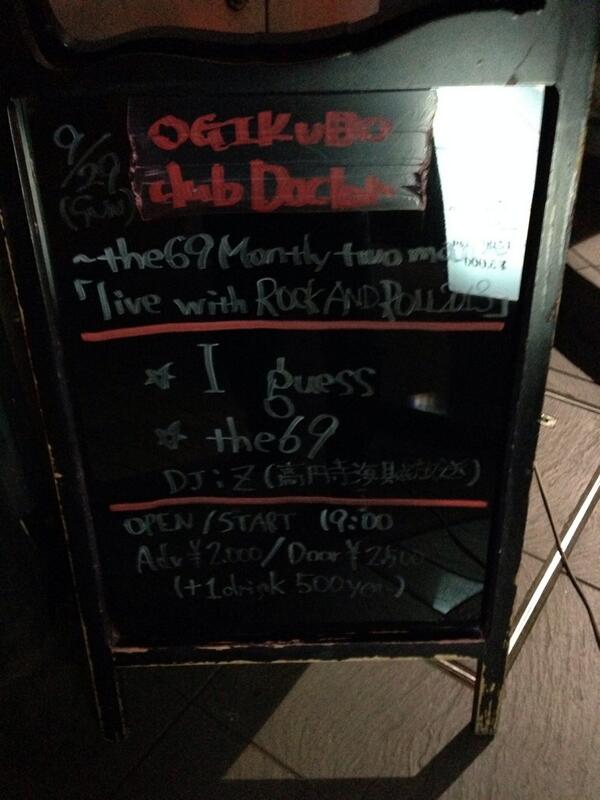 9/29
(SUN)
OGIKUBO
club Doctor
~the69 Montly two
「live with ROCK AND ROLL 2013」
☆ I guess
☆ the69
DJ:Z (高円寺海賊放送)
OPEN/START 19:00
Adv ¥2.000/Door ¥2.500
(+1drink 500yen)
¥2,000